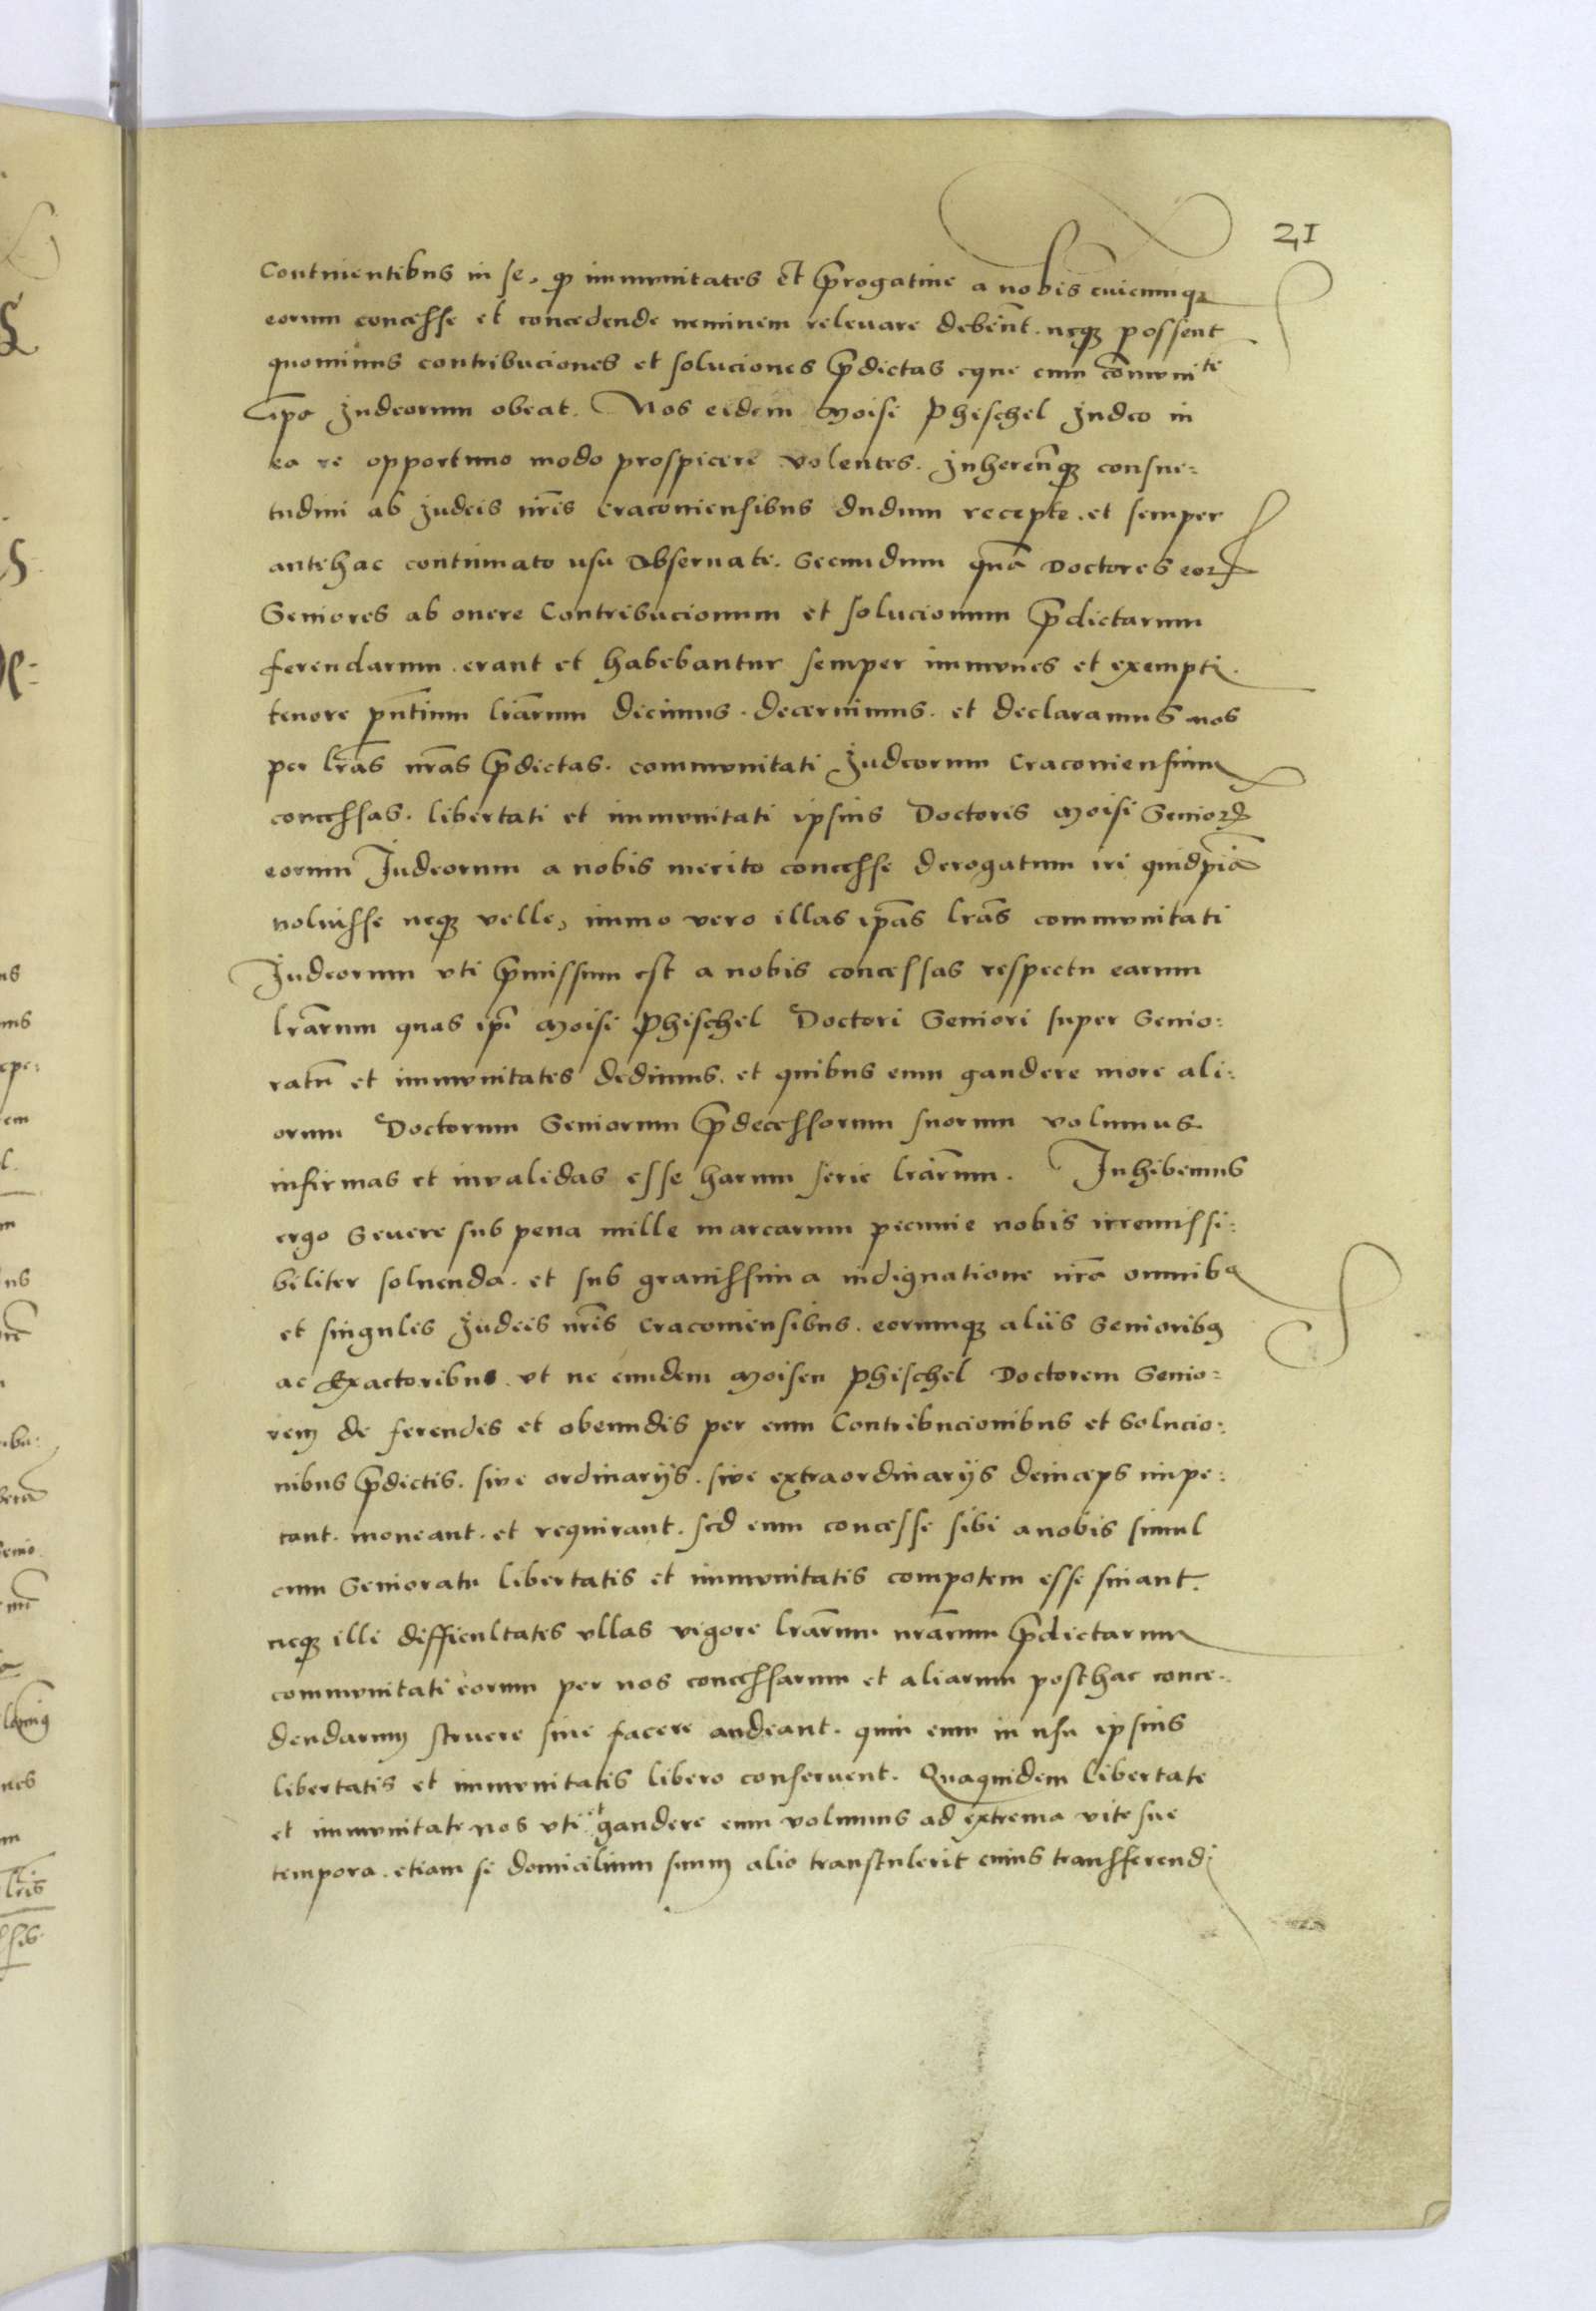 21
Continentibus in se, ꝙ immunitates et p̄rogatiue a nobis cuicumqꝫ
eorum concesse et concedende neminem releuare debeñt. neqꝫ possent
quominus contribuciones et soluciones p̄dictas eque cum com̄uni te
ip̄o Judeorum obeat. Nos eidem Moisi Phischel Judeo in
ea re opportuno modo prospicere volentes. Inhereñqꝫ consue=
tudini ab Judeis nr̄is Cracouiensibus dudum recepte. et semper
antehac continuato usu obseruate. Secundum quā Doctores eorꝝ
Seniores ab onere Contribucionum et solucionum p̄dictarum
ferendarum. erant et habebantur semper immunes et exempti.
tenore pn̄tium lr̄arum dicimus. decernimus. et declaramus nos
per lr̄as nr̄as p̄dictas. communitati Judeorum Cracouiensium
concessas. libertati et immunitati ipsius Doctoris Moisi Seniorꝭ
eorum Judeorum a nobis merito concesse derogatum iri quidpiā
noluisse neqꝫ velle, immo vero illas ip̄as lr̄as communitati
Judeorum vti p̄missum est a nobis concessas respectu earum
lr̄arum quas ip̄i Moisi Phischel Doctori Seniori super Senio:
ratū et immunitates dedimus. et quibus eum gaudere more ali:
orum Doctorum Seniorum p̄decessorum suorum volumus.
infirmas et inualidas esse harum serie lr̄arum. Inhibemus
ergo Seuere sub pena mille marcarum pecunie nobis irremissi:
biliter soluenda. et sub grauissima indignatione nr̄a omnibꝯ
et singulis Judeis nr̄is Cracouiensibus. eorumqꝫ aliis Senioribꝯ
ac Exactoribus. vt ne eundem Moisen Phischel Doctorem Senio=
rem de ferendis et obeundis per eum Contribucionibus et Solucio:
nibus p̄dictis. siue ordinarijs. siue extraordinarijs deinceps impe:
tant. moneant. et requirant. sed eum concesse sibi a nobis simul
cum Senioratu libertatis et immunitatis compotem esse sinant.
neqꝫ illi difficultates vllas vigore lr̄arum nr̄arum p̄dictarum
communitati eorum per nos concessarum et aliarum posthac conce-
dendarum struere siue facere audeant. quin eum in usu ipsius
libertatis et immunitatis libero conseruent. Quaquidem libertate
et immunitate nos vti et gaudere eum volumus ad extrema vite sue
tempora. etiam si domicilium suum alio transtulerit cuius transferendi